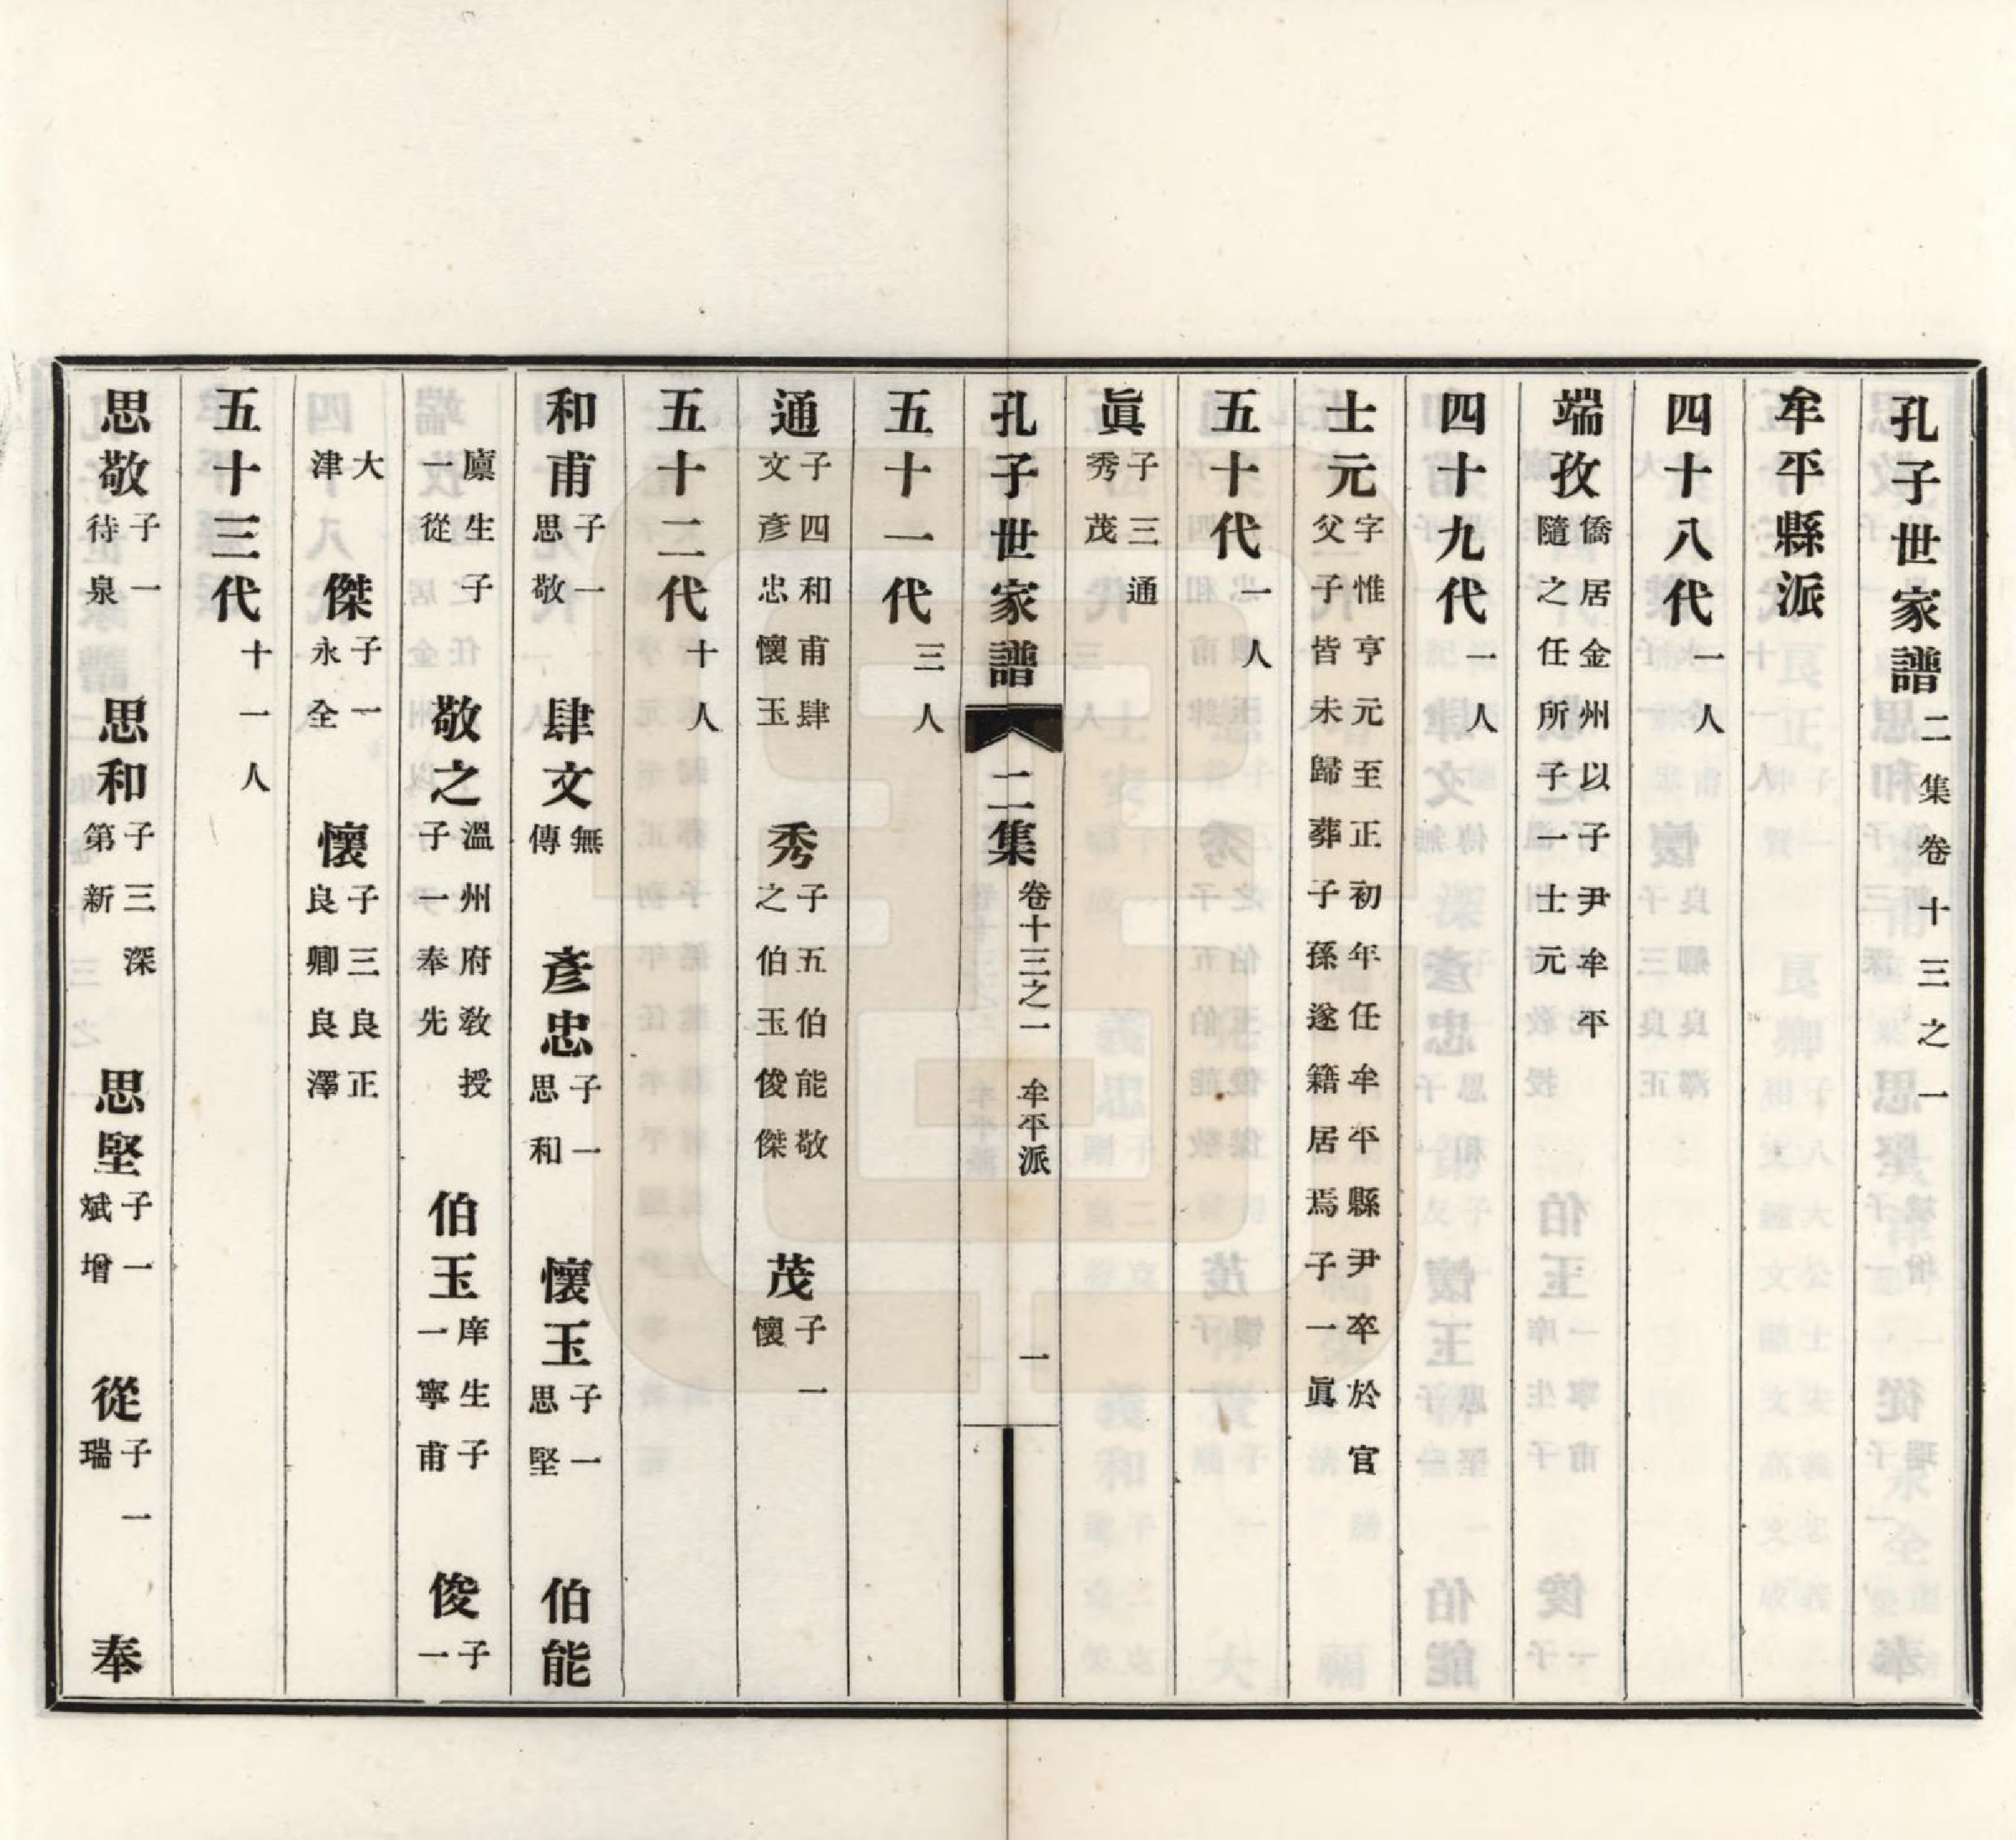 孔子世家譜二集卷十三之一
牟平縣派
四十八代一人
端孜僑居金州以子尹牟平
隨之任所子一士元
四十九代一人
士元字惟亨元至正初年任牟平縣尹卒於官
父子皆未歸葬子孫遂籍居焉子一眞
五十代一人
眞子三通
秀茂
孔子世家譜二集卷十三之一牟平派一
五十一代三人
通子四和甫肆
文彥忠懷玉
秀子五伯能敬
之伯玉俊傑
茂子一
懷
五十二代十人
和甫子一
思敬
肆文無
傳
彥忠子一
思和
懷玉子一
思堅
伯能
廩生子
一從
敬之溫州府教授
子一奉先
伯玉庠生子
一寧甫
俊子
一
大
津
傑子一
永全
懷子三良正
良卿良澤
五十三代十一人
思敬子一
待泉
思和子三深
第新
思堅子一
斌增
從子一
瑞
奉